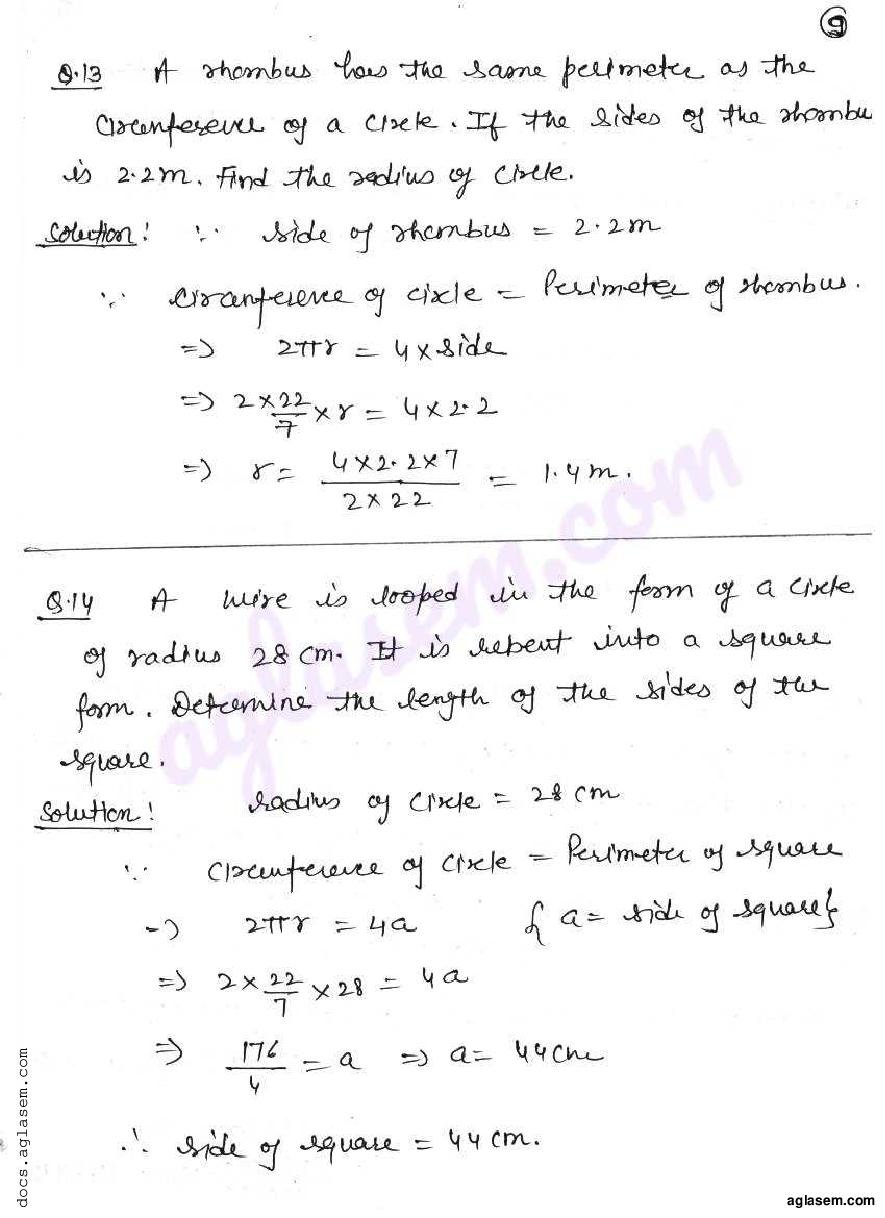 9
Q.13 A rhombus has the same perimeter as the
circumference of a circle. If the sides of the rhombu
is 2.2m. Find the radius of circle.
Solution! ∵ side of rhombus = 2.2m
∵ circumference of circle = Perimeter of rhombus.
=> 2πr = 4×side
=> 2×22/7×r = 4×2.2
=> r = 4×2.2×7/2×22 = 1.4m.
Q.14 A wire is looped in the form of a circle
of radius 28cm. It is rebent into a square
form. Determine the length of the sides of the
square.
Solution! radius of circle = 28cm
∵ Circumference of circle = Perimeter of square
=> 2πr = 4a { a = side of square}
=> 2×22/7×28 = 4a
=> 176/4 = a => a = 44cm
∴ side of square = 44cm.
aglasem.com
docs.aglasem.com
aglasem.com